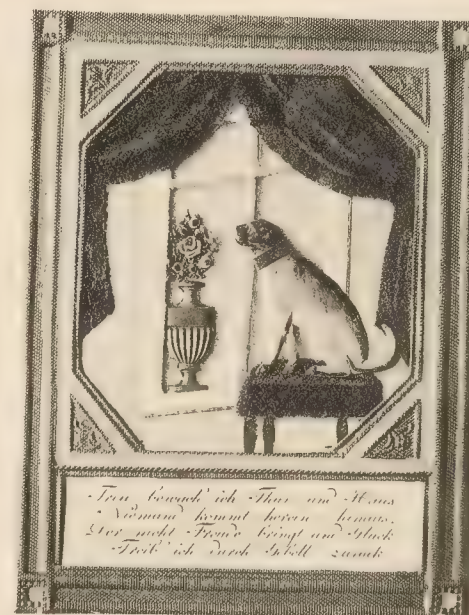 Treu bewach' ich Thür und Haus
Niemand kommt herein hinaus.
Wer nicht Freude bringt und Glück
Treib' ich durch Gebell zurück